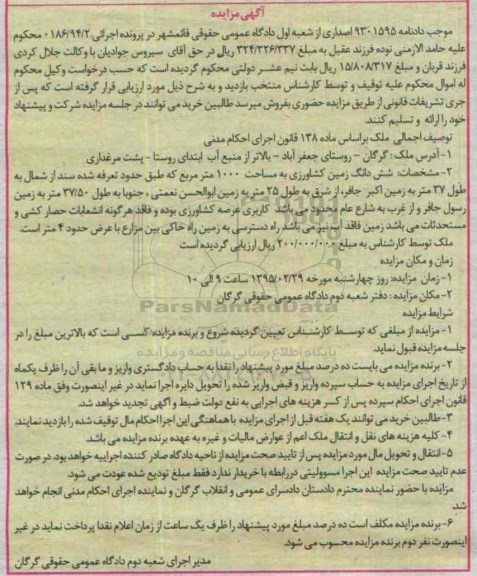 آگهی مزایده
موجب دادنامه ۹۳۰۱۵۹۵ اصداری از شعبه اول دادگاه عمومی حقوقی قائمشهر در پرونده اجرائی ۰۱۸۶/۹۴/۲ محکوم
علیه حامد الازمنی نوده فرزند عقیل به مبلغ ۳۲۴/۳۲۶/۳۳۷ ریال در حق آقای سیروس جوادیان با وکالت جلال کردی
فرزند قربان و مبلغ ۱۵/۸۰۸/۳۱۷ ریال بابت نیم عشر دولتی محکوم گردیده است که حسب درخواست وکیل محکوم
له اموال محکوم علیه توقیف و توسط کارشناس منتخب بازدید و به شرح ذیل مورد ارزیابی قرار گرفته است که پس از
جری تشریفات قانونی از طریق مزایده حضوری بفروش میرسد طالبین خرید می توانند در جلسه مزایده شرکت و پیشنهاد
خود را ارائه و تسلیم کنند.
توصیف اجمالی ملک براساس ماده ۱۳۸ قانون اجرای احکام مدنی
۱- آدرس ملک : گرگان – روستای جعفر آباد – بالاتر از منبع آب ابتدای روستا - پشت مرغداری
۲- مشخصات: شش دانگ زمین کشاورزی به مساحت ۱۰۰۰ متر مربع که طبق حدود تعرفه شده سند از شمال به
طول ۳۷ متر به زمین اکبر جافر، از شرق به طول ۲۵ متر به زمین ابوالحسن نعمتی ، جنوبا به طول ۳۷/۵۰ متر به زمین
رسول جافر و از غرب به شارع عام محدود می باشد کاربری عرصه کشاورزی بوده و فاقد هرگونه انشعابات حصار کشی و
مستحدثات می باشد زمین فاقد آب نیز می باشد راه دسترسی به زمین راه خاکی بین مزارع با عرض حدود ۴ متر است.
ملک توسط کارشناس به مبلغ ۲۰۰/۰۰۰/۰۰۰ ریال ارزیابی گردیده است
زمان و مکان مزایده
۱- زمان مزایده: روز چهارشنبه مورخه ۱۳۹۵/۰۲/۲۹ ساعت ۹ الی ۱۰
۲- مکان مزایده : دفتر شعبه دوم دادگاه عمومی حقوقی گرگان
ParsNamadData
شرایط مزایده
۱- مزایده از مبلغی که توسط کارشناس تعیین گردیده شروع و برنده مزایده کسی است که بالاترین مبلغ را در
جلسه مزایده قبول نماید.
پایگاه اطلاع رسانی مناقصه و مزایده
۲- برنده مزایده می بایست ده درصد مبلغ مورد پیشنهاد را نقدا به حساب دادگستری واریز و ما بقی آن را ظرف یکماه
از تاریخ اجرای مزایده به حساب سپرده واریز و قبض واریز شده را تحویل دایره اجرا نماید در غیر اینصورت وفق ماده ۱۲۹
قانون اجرای احکام سپرده پس از کسر هزینه های اجرایی به نفع دولت ضبط و آگهی تجدید خواهد شد.
۳- طالبین خرید می توانند یک هفته قبل از اجرای مزایده با هماهنگی این اجرا احکام مال توقیف شده را بازدید نمایند.
۴- کلیه هزینه های نقل و انتقال ملک اعم از عوارض مالیات و غیره به عهده برنده مزایده می باشد.
۵- انتقال و تحویل مال مورد مزایده پس از تایید صحت مزایده از ناحیه دادگاه صادر کننده اجراییه خواهد بود. در صورت
عدم تایید صحت مزایده این اجرا مسوولیتی دررابطه با خریدار ندارد فقط مبلغ تودیع شده عودت می شود.
مزایده با حضور نماینده محترم دادستان دادسرای عمومی و انقلاب گرگان و نماینده اجرای احکام مدنی انجام خواهد
شد.
۶- برنده مزایده مکلف است ده درصد مبلغ مورد پیشنهاد را ظرف یک ساعت از زمان اعلام نقدا پرداخت نماید در غیر
اینصورت نفر دوم برنده مزایده محسوب می شود.
مدیر اجرای شعبه دوم دادگاه عمومی حقوقی گرگان